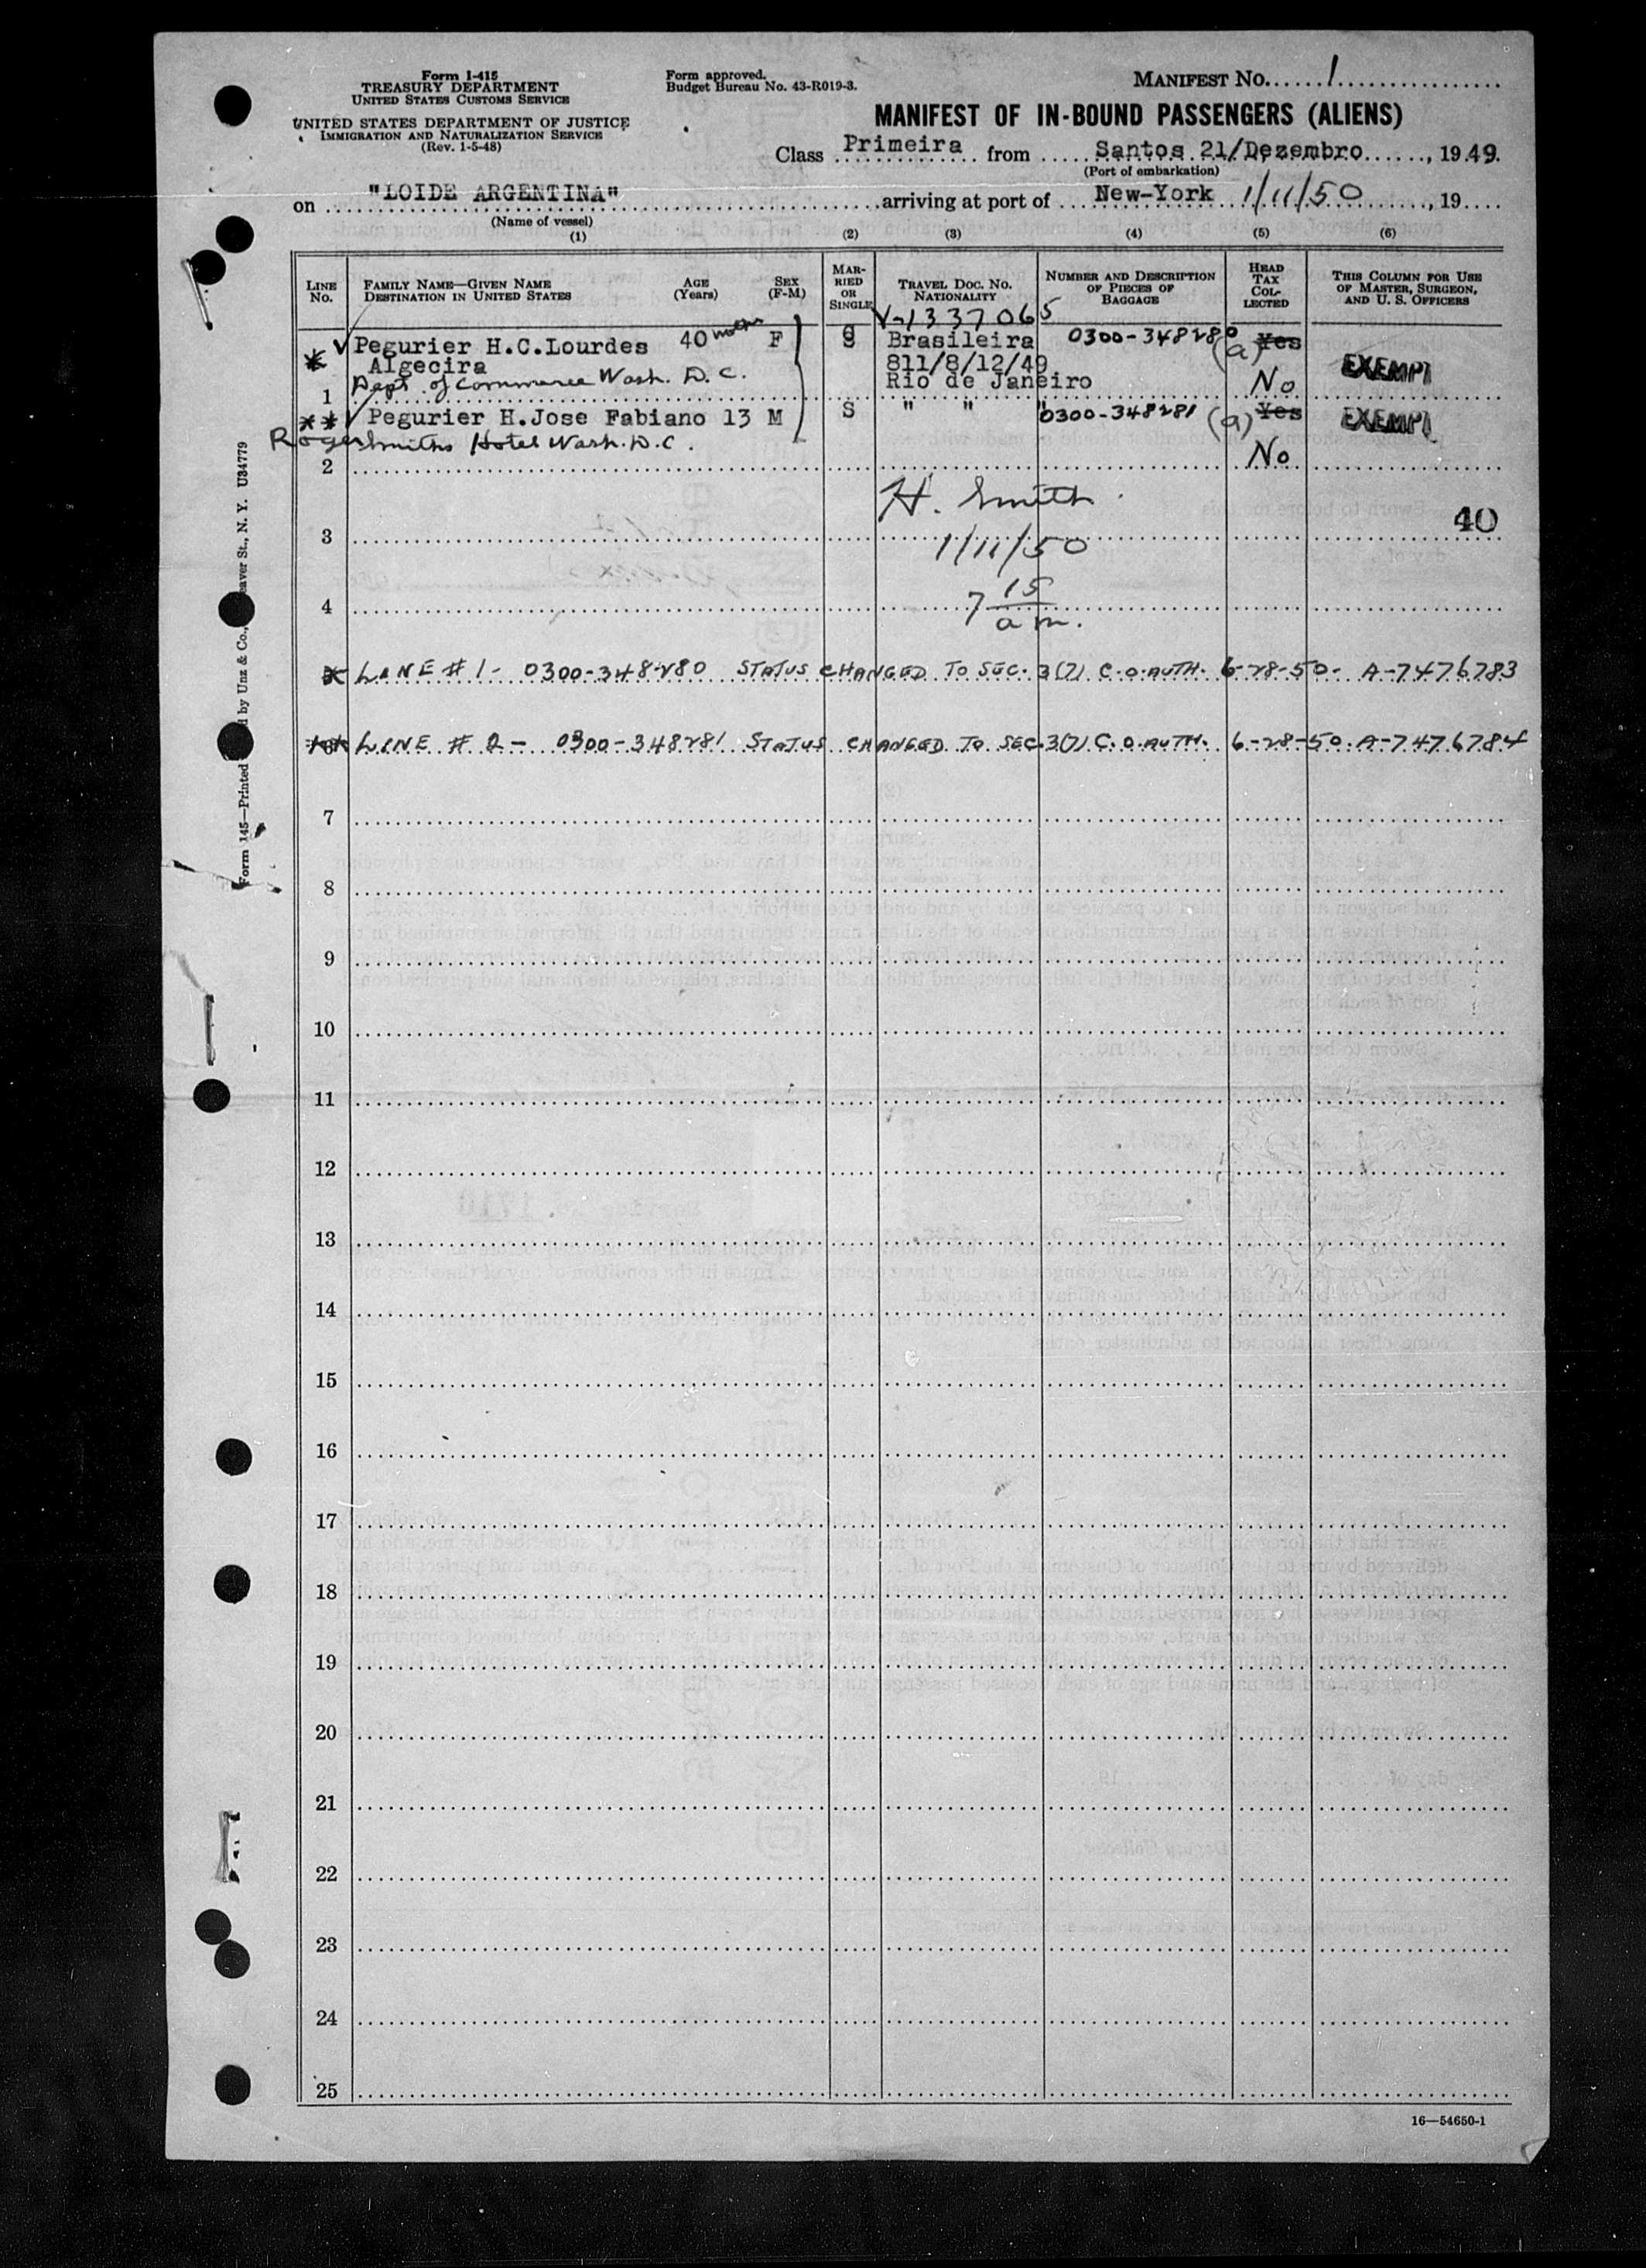 Form I-415
TREASURY DEPARTMENT
UNITED STATES CUSTOMS SERVICE
UNITED STATES DEPARTMENT OF JUSTICE
IMMIGRATION AND NATURALIZATION SERVICE
(Rev. 1-5-48)
Form approved.
Budget Bureau No. 43-R019-3.
MANIFEST No. 1
MANIFEST OF IN-BOUND PASSENGERS (ALIENS)
Class Primeira from Santos 21/Dezembro, 1949.
(Port of embarkation)
on "LOIDE ARGENTINA" arriving at port of New-York 1/11/50, 19
(Name of vessel)
(1) (2) (3) (4) (5) (6)
LINE No.
FAMILY NAME—GIVEN NAME
DESTINATION IN UNITED STATES
AGE (Years)
SEX (F-M)
MARRIED OR SINGLE
TRAVEL DOC. NO.
NATIONALITY
NUMBER AND DESCRIPTION OF PIECES OF BAGGAGE
HEAD TAX COLLECTED
THIS COLUMN FOR USE OF MASTER, SURGEON, AND U. S. OFFICERS
V-1337065
Pegurier H.C.Lourdes 40 F S Brasileira 0300-348280 (a) Yes
Algecira 811/8/12/49 EXEMPT
Dept. of Commerce Wash. D.C. Rio de Janeiro No
1
** Pegurier H.Jose Fabiano 13 M S " " " 0300-348281 (a) Yes EXEMPT
Roger Smiths Hotel Wash. D.C. No
2
H. Smith
40
3
1/11/50
4
7 15
a m.
* LINE # 1- 0300-348280 STATUS CHANGED TO SEC. 3(7) C.O. AUTH. 6-28-50- A-7476783
** LINE # 2- 0300-348281 STATUS CHANGED TO SEC. 3(7) C.O. AUTH. 6-28-50. A-7476784
7
8
9
10
11
12
13
14
15
16
17
18
19
20
21
22
23
24
25
16—54650-1
Form 145—Printed by Unz & Co., eaver St., N. Y. U34779